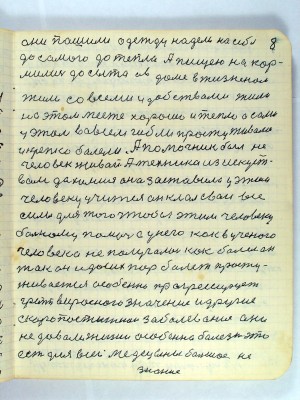 они пошили одежду надели на себя 8
до самого до тепла А пищею на кор-
мили до сыта
жили со всеми удобствами жили
на этом месте хорошо и тепло а сами
у этом
и крепко болели. А помочник был не
человек живай А техника из искуст-
вом да химия она заставила у этим
человеку учится он клал свои все
силы для того чтобы этим человеку
больному помоч а у него как в ученого
человека не получалос как болел он
так он и до сих пор болеет просту-
живается особенно прогрессирует
грипп виросного значение и другие
скоропостижное заболевание они
не довали жизни особенно болезн это
ест для всей медецины большое не
знание